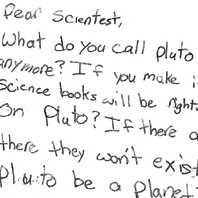 Dear Scientest,
What do you call pluto
anymore? If you make i
Science books will be right.
On Pluto? If there a
there they won't exist
Pluto be a planet